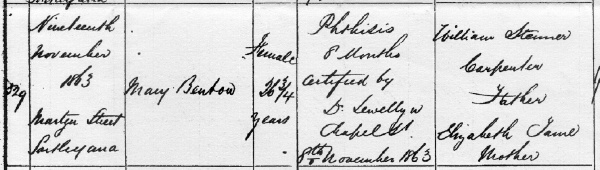 329
Nineteenth
November
1863
Martyr Street
Mary Benbow
Female
26 3/4
years
Phthisis
8 Months
Certified by
Dr Lewellyn
Chapel St.
8th November 1863
William Stanner
Carpenter
Father
Elizabeth Jane
Mother